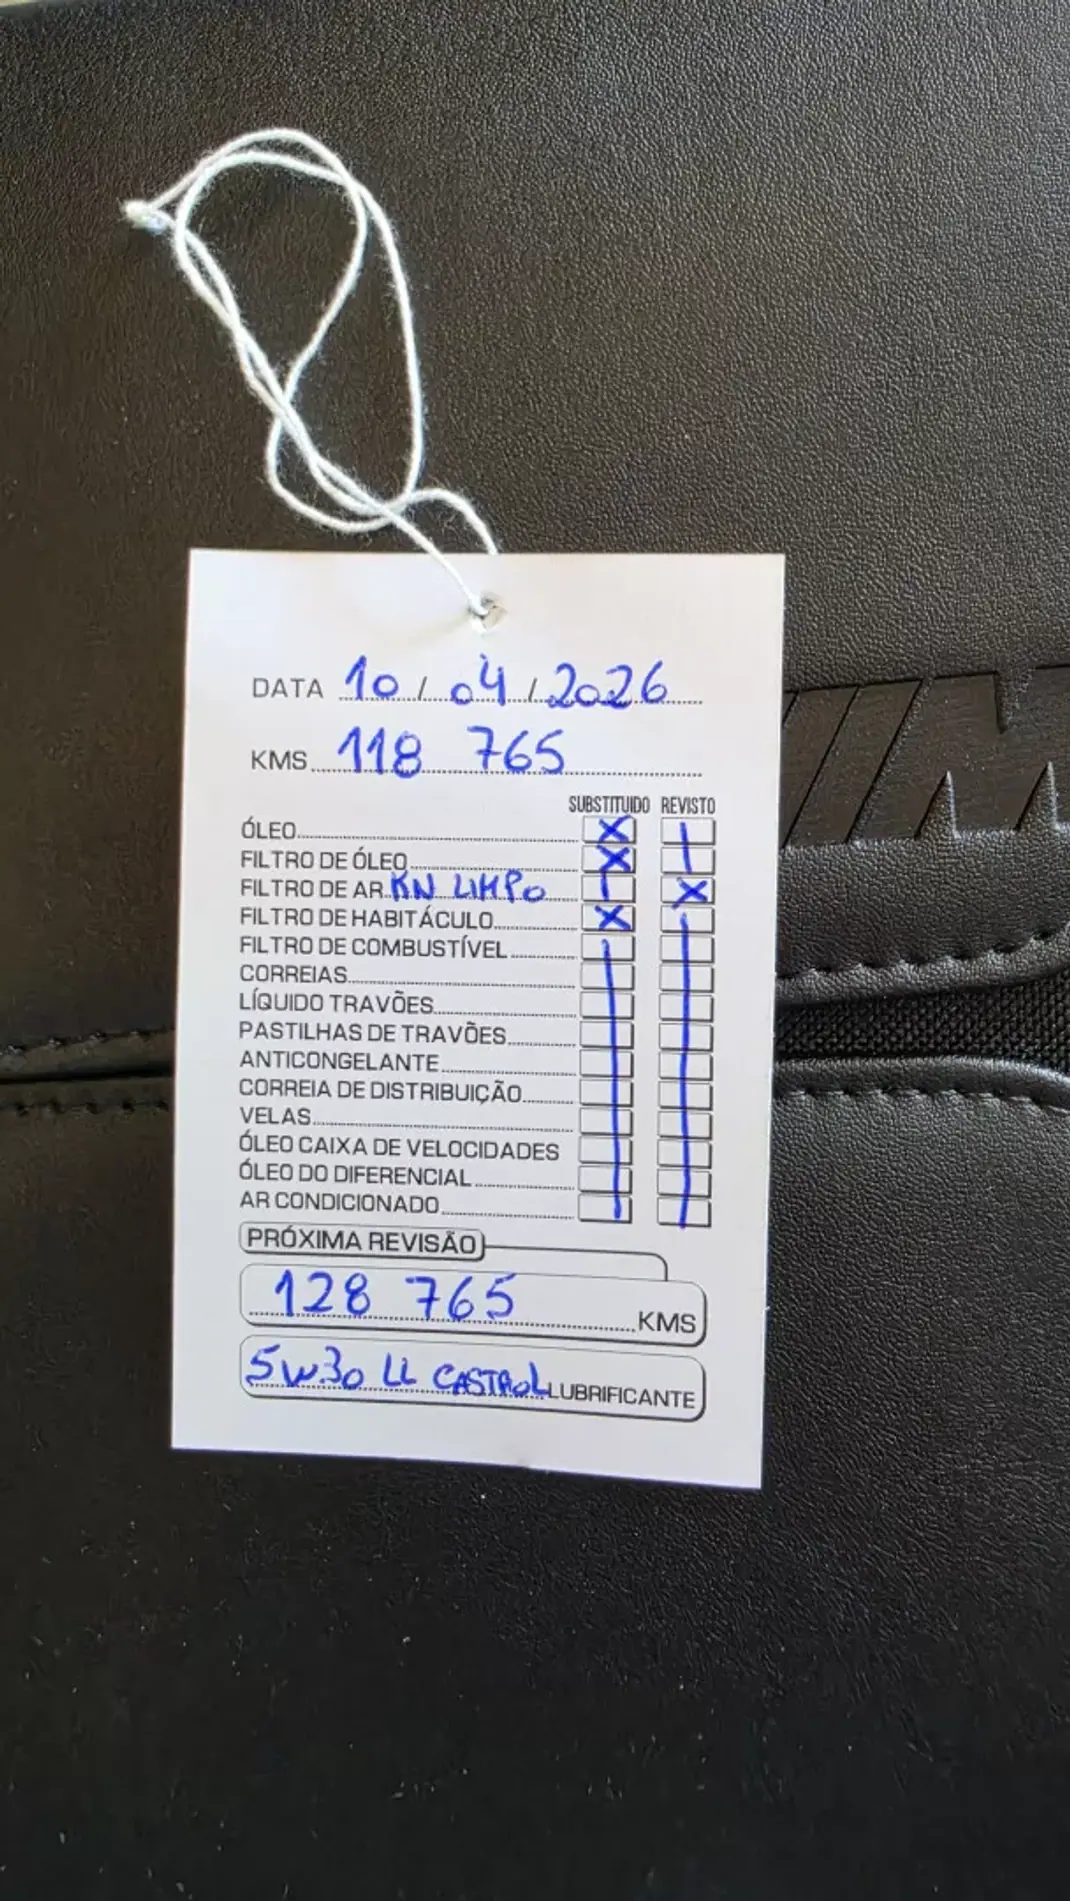 DATA 10 / 04 / 2026
KMS 118 765
SUBSTITUIDO REVISTO
ÓLEO X
FILTRO DE ÓLEO X
FILTRO DE AR KN LIMPO X
FILTRO DE HABITÁCULO X
FILTRO DE COMBUSTÍVEL
CORREIAS
LÍQUIDO TRAVÕES
PASTILHAS DE TRAVÕES
ANTICONGELANTE
CORREIA DE DISTRIBUIÇÃO
VELAS
ÓLEO CAIXA DE VELOCIDADES
ÓLEO DO DIFERENCIAL
AR CONDICIONADO
PRÓXIMA REVISÃO
128 765 KMS
5W30 LL CASTROL LUBRIFICANTE